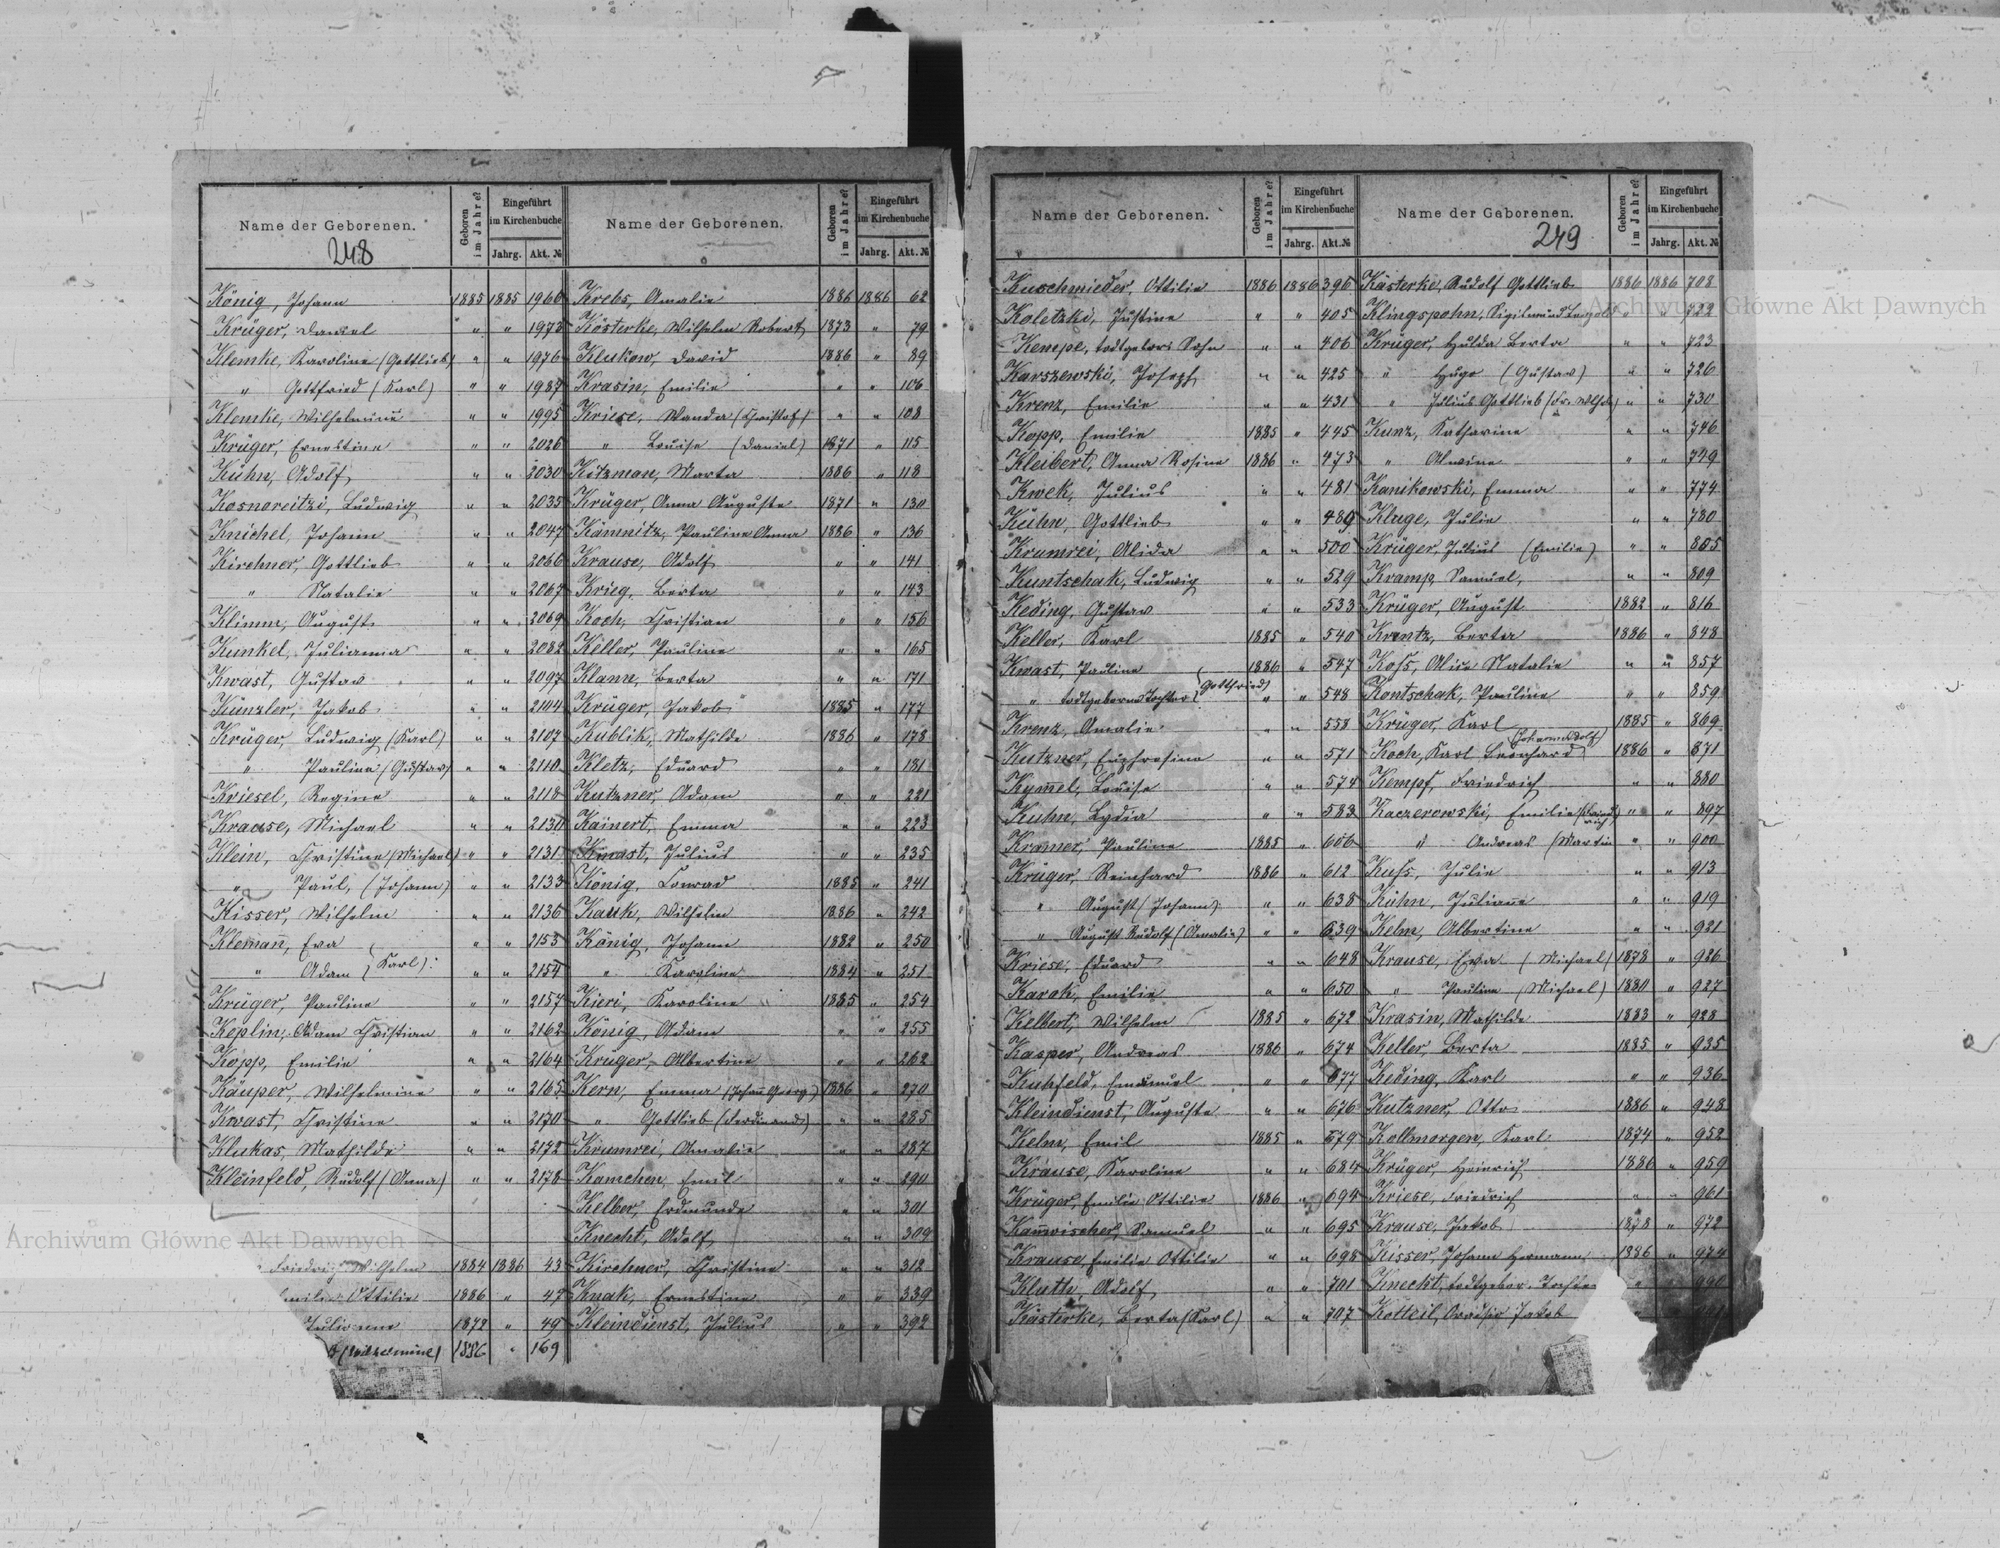 Name der Geborenen.
Geboren im Jahre?
Eingeführt im Kirchenbuche
Jahrg.
Akt. №
Name der Geborenen.
Geboren im Jahre?
Eingeführt im Kirchenbuche
Jahrg.
Akt. №
248
König, Johann 1885 1885 1960
Krüger, Daniel " " 1973
Klemke, Karoline (Gottlieb) " " 1976
" Gottfried (Karl) " " 1987
Klemke, Wilhelmine " " 1995
Krüger, Ernestine " " 2026
Kühn, Adolf " " 2030
Ludwig " " 2035
Knichel, Johann " " 2047
Kirchner, Gottlieb " " 2066
" Natalie " " 2067
Klimm, August " " 2069
Kunkel, Julianna " " 2082
Kwast, Gustav " " 2097
Künzler, Jakob " " 2104
Krüger, Ludwig (Karl) " " 2107
" Pauline (Gustav) " " 2110
Kriesel, Regine " " 2118
Krause, Michael " " 2130
Klein, Christine (Michael) " " 2131
" Paul, (Johann) " " 2133
Kisser, Wilhelm " " 2136
Klemañ, Eva " " 2153
" Adam (Karl) " " 2154
Krüger, Pauline " " 2157
Keplin, Adam Christian " " 2162
Kopp, Emilie " " 2164
Käuper, Wilhelmine " " 2165
Kwast, Christine " " 2170
Klukas, Mathilde " " 2172
Kleinfeld, Rudolf (Anna) " " 2178
Friedrich Wilhelm 1884 1886 43
Ottilie 1886 " 47
Julianne 1872 " 49
(Wilhelmine) 1886 " 169
Krebs, Amalie 1886 1886 62
Kösterke, Wilhelm Robert 1873 " 79
Klukow, David 1886 " 89
Krasin, Emilie " " 106
Kriese, Wanda (Christof) " " 108
" Louise (Daniel) 1871 " 115
Kitzman, Marta 1886 " 118
Krüger, Anna Auguste 1871 " 130
Kämnitz, Pauline Anna 1886 " 136
Krause, Adolf " " 141
Krieg, Berta " " 143
Koch, Christian " " 156
Keller, Pauline " " 165
Klamm, Berta " " 171
Krüger, Jakob 1885 " 177
Kublik, Mathilde 1886 " 178
Kletz, Eduard " " 181
Kutzner, Adam " " 221
Kainert, Emma " " 223
Kwast, Julius " " 235
König, Conrad 1885 " 241
Kauk, Wilhelm 1886 " 242
König, Johann 1882 " 250
" Karoline 1884 " 251
Kieri, Karoline 1885 " 254
König, Adam " " 255
Krüger, Albertine " " 262
Kern, Emma (Johañ Georg) 1886 " 270
" Gottlieb (Ferdinand) " " 285
Krumrei, Amalie " " 287
Kamchen, Emil " " 290
Kelber, Erdmunde " " 301
Knecht, Adolf " " 309
Kirchner, Christine " " 312
Knak, Ernestine " " 339
Kleindienst, Julius " " 392
Name der Geborenen.
Geboren im Jahre?
Eingeführt im Kirchenbuche
Jahrg.
Akt.№
Name der Geborenen.
Geboren im Jahre?
Eingeführt im Kirchenbuche
Jahrg.
Akt.№
249
Kuschmieder, Ottilie 1886 1886 396
Koletzki, Justine " " 405
Kempe, todtgebor. Sohn " " 406
Karszewski, Joseph " " 425
Krenz, Emilie " " 431
Kopp, Emilie 1885 " 445
Kleibert, Anna Rosine 1886 " 473
Kwek, Julius " " 481
Kühn, Gottlieb " " 489
Krumrei, Alida " " 500
Kuntschak, Ludwig " " 529
Keding, Gustav " " 533
Keller, Karl 1885 " 540
Kwast, Pauline 1886 " 547
" todtgeborne Tochter (Gottfried) " " 548
Krenz, Amalie " " 558
Kutzner, Euphrosine " " 571
Kym̄el, Louise " " 574
Kuhn, Lydia " " 583
Kramer, Pauline 1885 " 606
Krüger, Reinhard 1886 " 612
" August (Johann) " " 638
" August Rudolf (Amalie) " " 639
Kriese, Eduard " " 648
Karok, Emilie " " 650
Kelbert, Wilhelm 1885 " 672
Kasper, Andreas 1886 " 674
Kuhfeld, Emanuel " " 677
Kleindienst, Auguste " " 676
Kelm, Emil 1885 " 679
Krause, Karoline " " 684
Krüger, Emilie Ottilie 1886 " 694
Samuel " " 695
Krause, Emilie Ottilie " " 698
Kluth, Adolf " " 701
Kästerke, Berta (Karl) " " 707
Kästerke, Rudolf Gottlieb 1886 1886 708
Klingspohn, Sigismund Leopold " " 722
Krüger, Hulda Berta " " 723
" Hugo (Gustav) " " 726
" Julius Gottlieb (Fr. Wilh.) " " 730
Kunz, Katharine " " 746
" Alwine " " 749
Kanikowski, Emma " " 774
Kluge, Julie " " 780
Krüger, Julius (Emilie) " " 805
Kramp, Samuel, " " 809
Krüger, August 1882 " 816
Krentz, Berta 1886 " 848
Koss, Alice Natalie " " 857
Kontschak, Pauline " " 859
Krüger, Karl 1885 " 869
Koch, Karl Leonhard (Johann Adolf) 1886 " 871
Kempf, Friedrich " " 880
Kaczerowski, Emilie (Friedrich) " " 897
" Andreas (Martin " " 900
Kuss, Julie " " 913
Kühn, Julianne " " 919
Kelm, Albertine " " 921
Krause, Eva (Michael) 1878 " 926
" Pauline (Michael) 1880 " 927
Krasin, Mathilde 1883 " 928
Keller, Berta 1885 " 935
Keding, Karl " " 936
Kutzner, Otto 1886 " 948
Kollmorgen, Karl 1874 " 952
Krüger, Heinrich 1886 " 959
Kriese, Friedrich " " 961
Krause, Jakob 1878 " 972
Kisser, Johann Hermann 1886 " 974
Knecht, todtgebor. Tochter "
Jakob
Archiwum Główne Akt Dawnych
Archiwum Główne Akt Dawnych